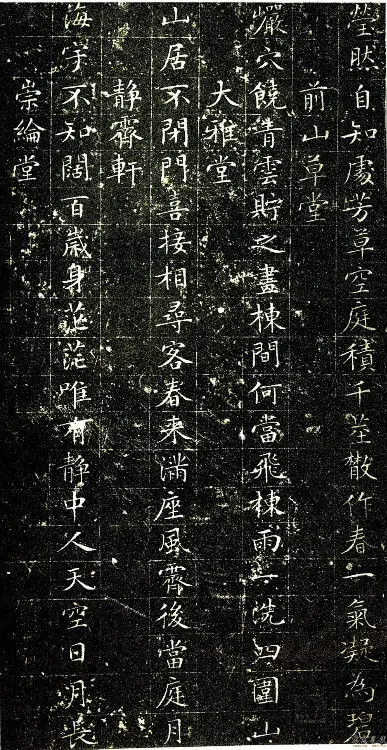 瑩然自知處芳草空庭積千莖散作春一氣凝為碧
前山草堂
巖穴饒青雲貯之畫棟間何當飛棟雨一洗四圍山
大雅堂
山居不閉門喜接相尋客春來滿座風霽後當庭月
靜霽軒
海宇不知闊百歲身茫茫唯有靜中人天空日月長
崇綸堂